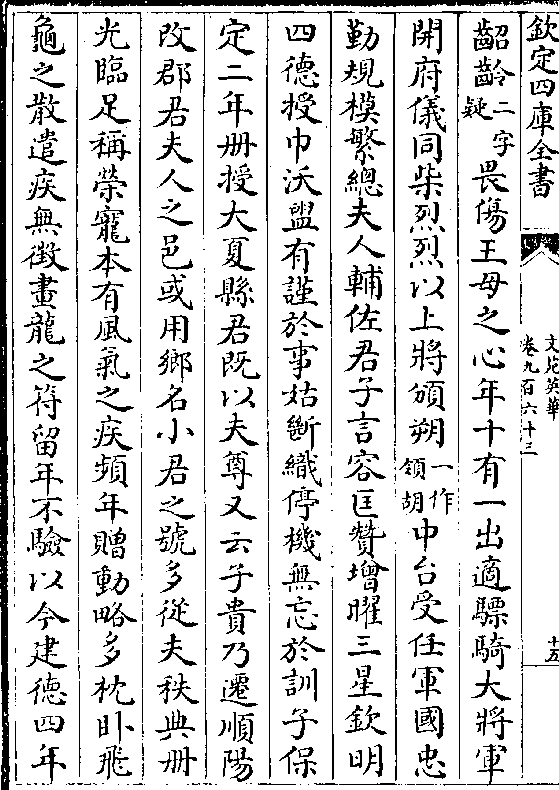 欽定四庫全書
文苑英華
卷九百六十三
十五
齠齡二字疑畏傷王母之心年十有一出適驃騎大將軍
開府儀同柴烈烈以上將頒朔一作領胡中台受任軍國忠
勤規模繁總夫人輔佐君子言容匡贊增曜三星欽明
四德授巾沃盥有謹於事姑斷織停機無忘於訓子保
定二年冊授大夏縣君既以夫尊又云子貴乃遷順陽
改郡君夫人之邑或用鄉名小君之號多從夫秩典冊
光臨足稱榮寵本有風氣之疾頻年贈動略多枕卧飛
龜之散遣疾無徵畫龍之符留年不驗以今建德四年